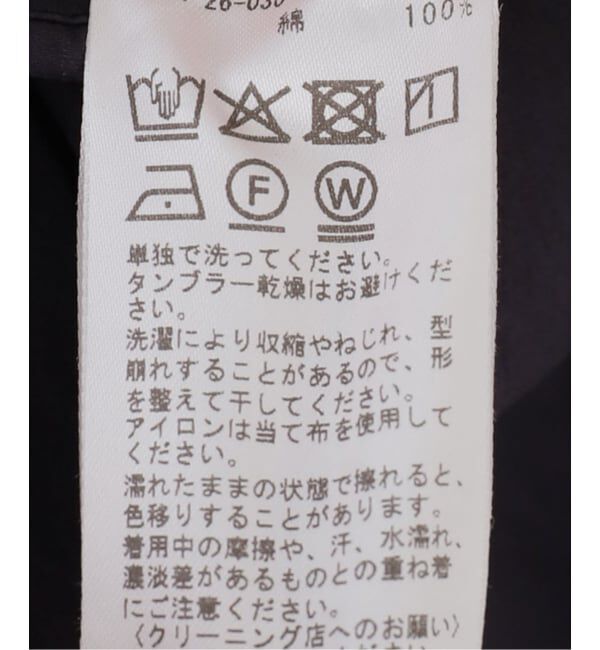 26-030
綿 100%
F W
単独で洗ってください。
タンブラー乾燥はお避けくだ
さい。
洗濯により収縮やねじれ、型
崩れすることがあるので、形
を整えて干してください。
アイロンは当て布を使用して
ください。
濡れたままの状態で擦れると、
色移りすることがあります。
着用中の摩擦や、汗、水濡れ、
濃淡差があるものとの重ね着
にご注意ください。
〈クリーニング店へのお願い〉